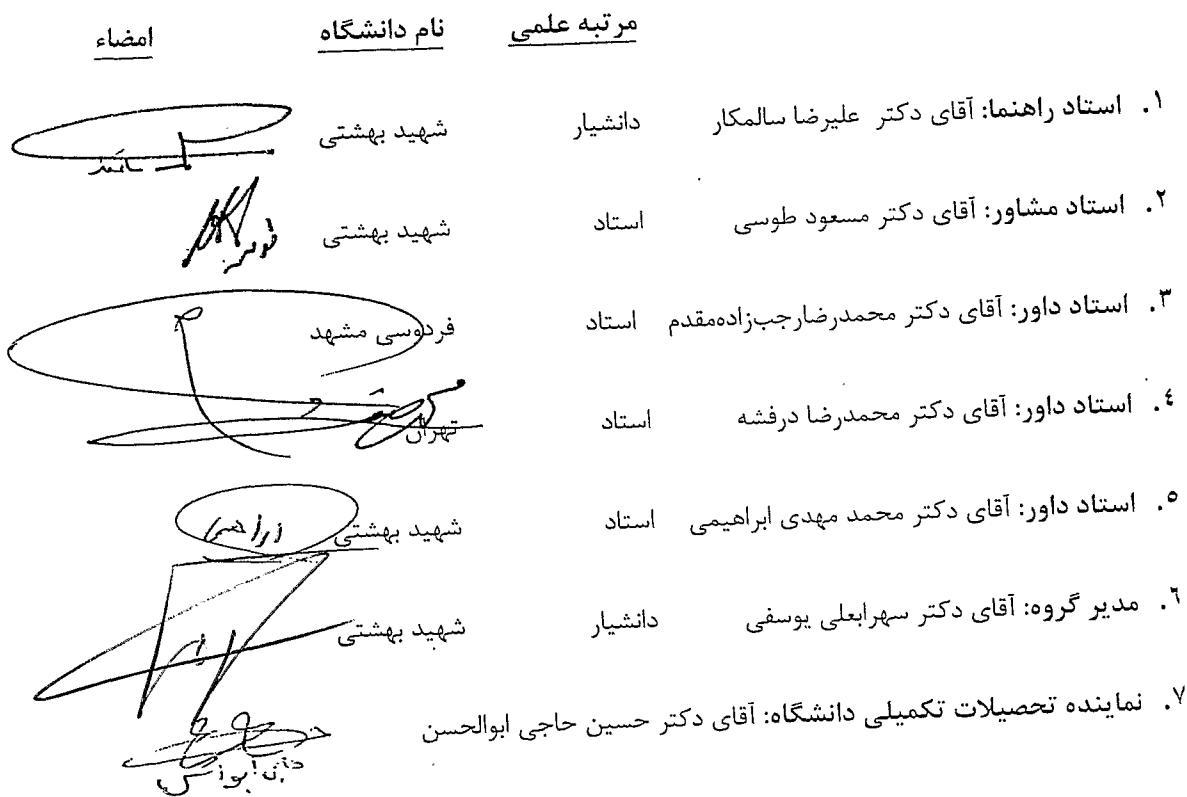 مرتبه علمی نام دانشگاه امضاء
۱. استاد راهنما: آقای دکتر علیرضا سالمکار دانشیار شهید بهشتی
۲. استاد مشاور: آقای دکتر مسعود طوسی استاد شهید بهشتی
۳. استاد داور: آقای دکتر محمدرضارجب‌زاده‌مقدم استاد فردوسی مشهد
٤. استاد داور: آقای دکتر محمدرضا درفشه استاد تهران
۵. استاد داور: آقای دکتر محمد مهدی ابراهیمی استاد شهید بهشتی
٦. مدیر گروه: آقای دکتر سهرابعلی یوسفی دانشیار شهید بهشتی
۷. نماینده تحصیلات تکمیلی دانشگاه: آقای دکتر حسین حاجی ابوالحسن